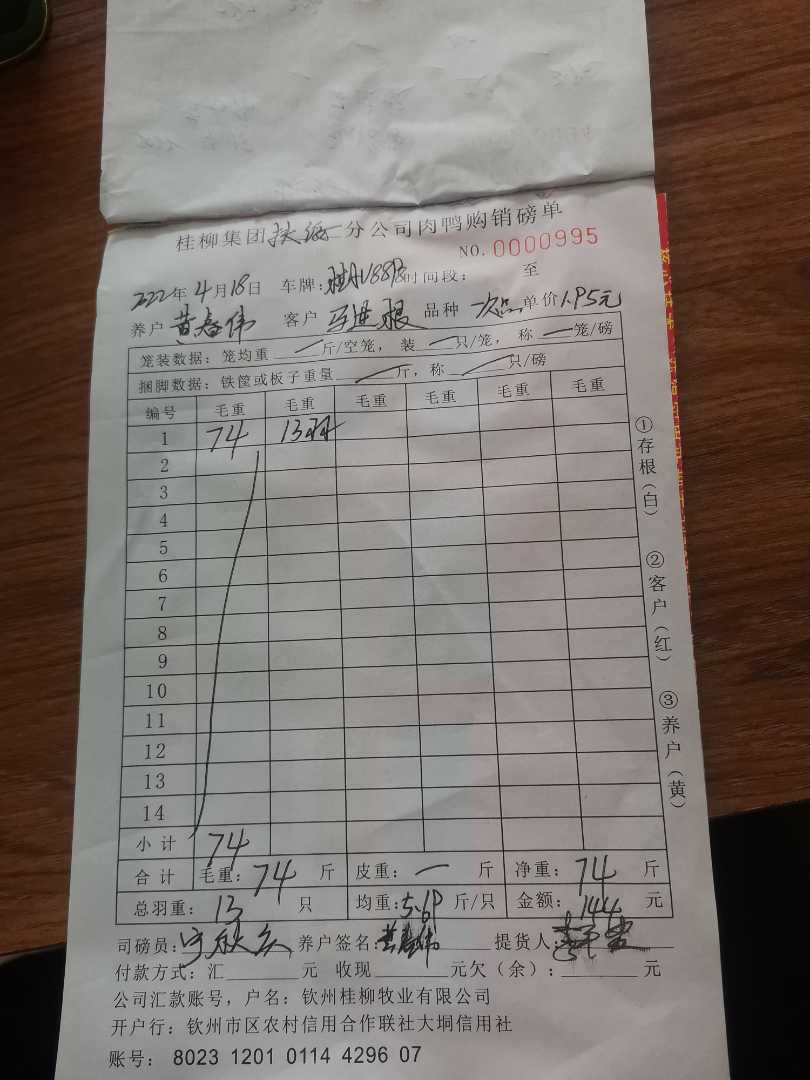 桂柳集团扶绥分公司肉鸭购销磅单
NO. 0000995
222年4月18日 车牌: 时间段: 至
养户 黄春伟 客户 马进根 品种 次品 单价1.95元
笼装数据: 笼均重 一 斤/空笼, 装 一 只/笼, 称 一 笼/磅
捆脚数据: 铁筐或板子重量 一 斤, 称 一 只/磅
编号 毛重 毛重 毛重 毛重 毛重 毛重
1 74 13羽
2
3
4
5
6
7
8
9
10
11
12
13
14
小计 74
合计 毛重: 74 斤 皮重: 一 斤 净重: 74 斤
总羽重: 13 只 均重: 5.69 斤/只 金额: 144 元
司磅员: 养户签名: 黄春伟 提货人:
付款方式: 汇 元 收现 元欠(余): 元
公司汇款账号, 户名: 钦州桂柳牧业有限公司
开户行: 钦州市区农村信用合作联社大垌信用社
账号: 8023 1201 0114 4296 07
①存根(白)
②客户(红)
③养户(黄)